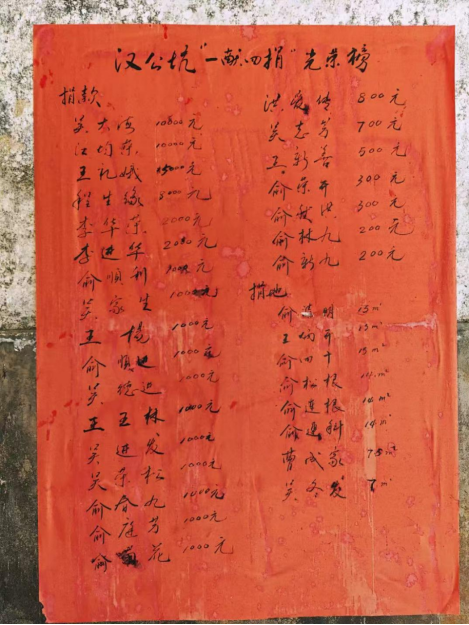 汉公坑“一献四捐”光荣榜
捐款
吴大海 10800元
江均东 10000元
王礼娥 15000元
程生缘 5000元
李华萍 2000元
李进华 2080元
俞顺利 1000元
吴家生 1000元
王杨 1000元
俞顺进 1000元
吴德边 1000元
王玉林 1000元
吴进发 1000元
吴荣松 1000元
俞春九 1000元
俞庭芳 1000元
俞花 1000元
洪爱传 800元
吴志芳 700元
王新喜 500元
俞荣开 300元
俞我洪 300元
俞林九 200元
俞新九 200元
捐地
俞志明 15㎡
王炳开 15㎡
俞田十 15㎡
俞松根 14㎡
俞连根 14㎡
俞逢科 14㎡
曹成家 7.5㎡
吴冬发 7㎡